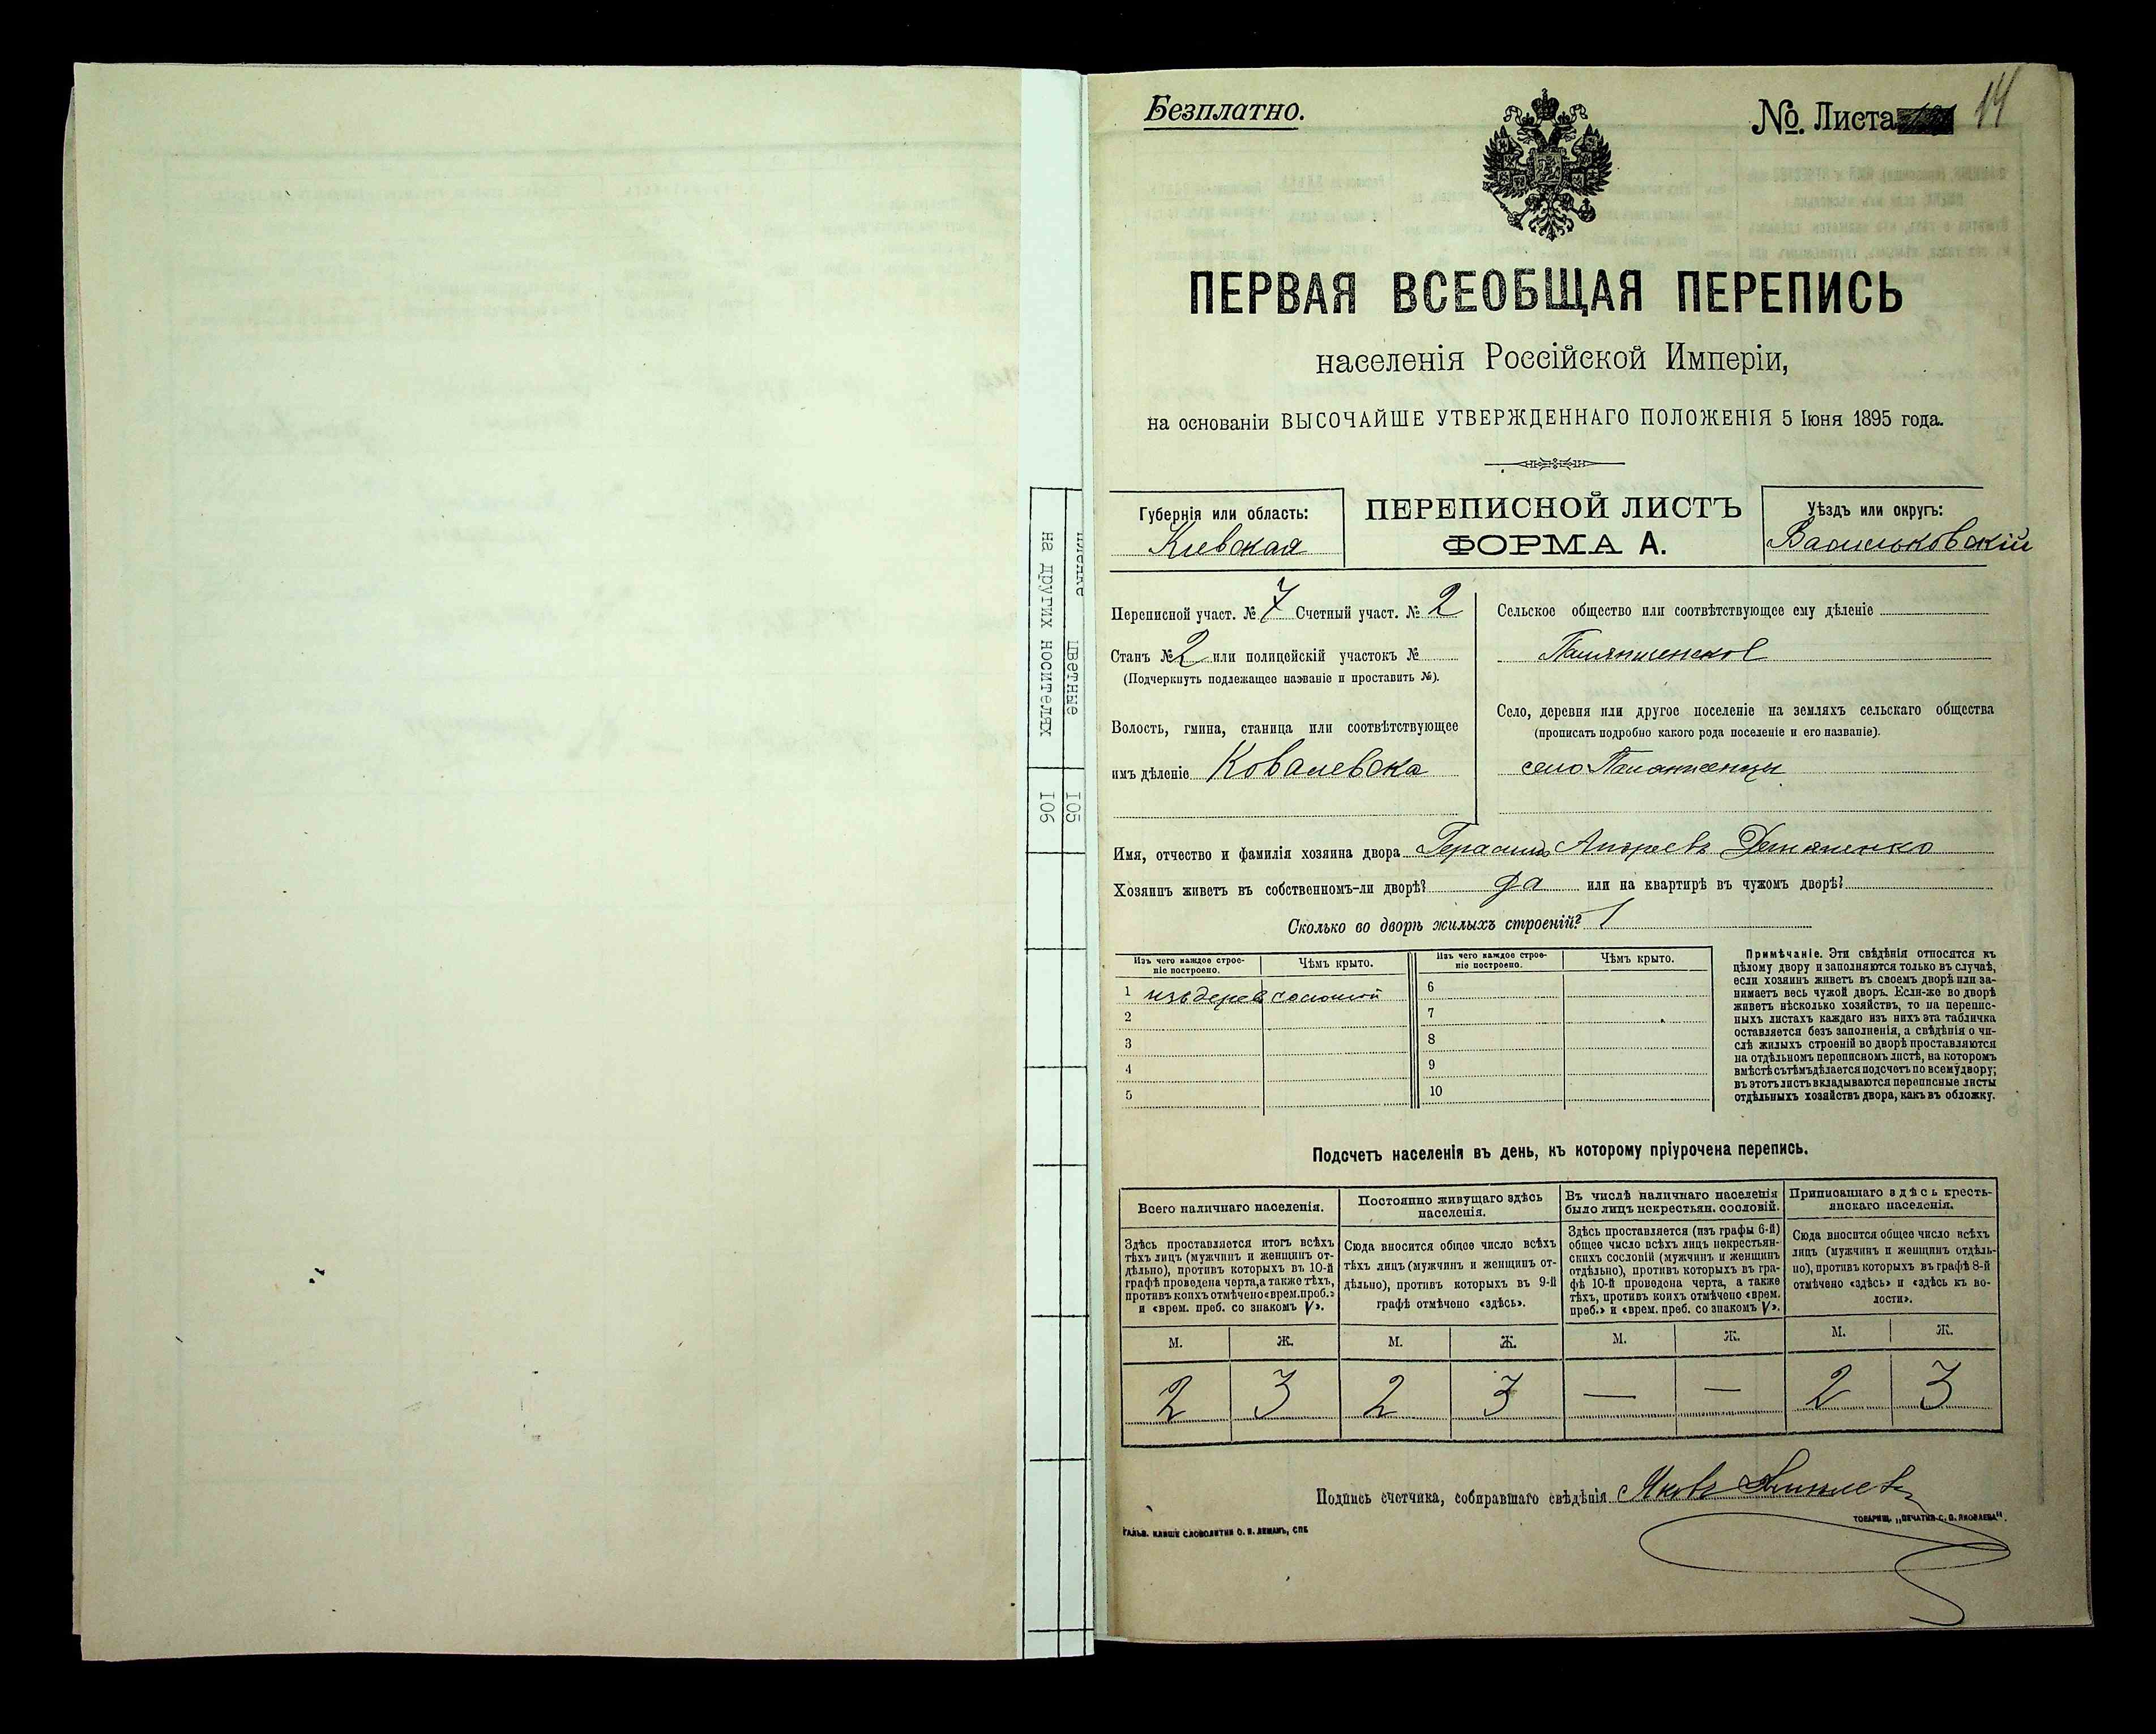 пленке
цветные
105
на других носителях
106
Безплатно.
№. Листа 14
ПЕРВАЯ ВСЕОБЩАЯ ПЕРЕПИСЬ
населенія Россійской Имперіи,
на основаніи ВЫСОЧАЙШЕ УТВЕРЖДЕННАГО ПОЛОЖЕНІЯ 5 Іюня 1895 года.
Губернія или область:
Кіевская
ПЕРЕПИСНОЙ ЛИСТЪ
ФОРМА А.
Уѣздъ или округъ:
Васильковскій
Переписной участ. № 7 Счетный участ. № 2
Станъ № 2 или полицейскій участокъ №
(Подчеркнуть подлежащее названіе и проставить №).
Волость, гмина, станица или соотвѣтствующее
имъ дѣленіе Ковалевска
Сельское общество или соотвѣтствующее ему дѣленіе
Село, деревня или другое поселеніе на земляхъ сельскаго общества
(прописать подробно какого рода поселеніе и его названіе).
село
Имя, отчество и фамилія хозяина двора Герасимъ Андреевъ Демяненко
Хозяинъ живетъ въ собственномъ-ли дворѣ? да или на квартирѣ въ чужомъ дворѣ?
Сколько во дворѣ жилыхъ строеній? 1
Изъ чего каждое строе-
ніе построено.
Чѣмъ крыто.
Изъ чего каждое строе-
ніе построено.
Чѣмъ крыто.
1 изъ дерев соломой
2
3
4
5
6
7
8
9
10
Примѣчаніе. Эти свѣдѣнія относятся къ
цѣлому двору и заполняются только въ случаѣ,
если хозяинъ живетъ въ своемъ дворѣ или за-
нимаетъ весь чужой дворъ. Если-же во дворѣ
живетъ нѣсколько хозяйствъ, то на перепис-
ныхъ листахъ каждаго изъ нихъ эта табличка
оставляется безъ заполненія, а свѣдѣнія о чи-
слѣ жилыхъ строеній во дворѣ проставляются
на отдѣльномъ переписномъ листѣ, на которомъ
вмѣстѣ съ тѣмъ дѣлается подсчетъ по всему двору;
въ этотъ листъ вкладываются переписные листы
отдѣльныхъ хозяйствъ двора, какъ въ обложку.
Подсчетъ населенія въ день, къ которому пріурочена перепись.
Всего наличнаго населенія.
Здѣсь проставляется итогъ всѣхъ
тѣхъ лицъ (мужчинъ и женщинъ от-
дѣльно), противъ которыхъ въ 10-й
графѣ проведена черта, а также тѣхъ,
противъ коихъ отмѣчено «врем. преб.»
и «врем. преб. со знакомъ V».
Постоянно живущаго здѣсь
населенія.
Сюда вносится общее число всѣхъ
тѣхъ лицъ (мужчинъ и женщинъ от-
дѣльно), противъ которыхъ въ 9-й
графѣ отмѣчено «здѣсь».
Въ числѣ наличнаго населенія
было лицъ некрестьян. сословій.
Здѣсь проставляется (изъ графы 6-й)
общее число всѣхъ лицъ некрестьян-
скихъ сословій (мужчинъ и женщинъ
отдѣльно), противъ которыхъ въ гра-
фѣ 10-й проведена черта, а также
тѣхъ, противъ коихъ отмѣчено «врем.
преб.» и «врем. преб. со знакомъ V».
Приписаннаго здѣсь кресть-
янскаго населенія.
Сюда вносится общее число всѣхъ
лицъ (мужчинъ и женщинъ отдѣль-
но), противъ которыхъ въ графѣ 8-й
отмѣчено «здѣсь» и «здѣсь къ во-
лости».
М. Ж. М. Ж. М. Ж. М. Ж.
2 3 2 3 — — 2 3
Подпись счетчика, собиравшаго свѣдѣнія Яковъ
ГАЛЬВ. КЛИШЕ СЛОВОЛИТНИ О. И. ЛЕМАНЪ, СПБ
ТОВАРИЩ. „ПЕЧАТНЯ С. П. ЯКОВЛЕВА".